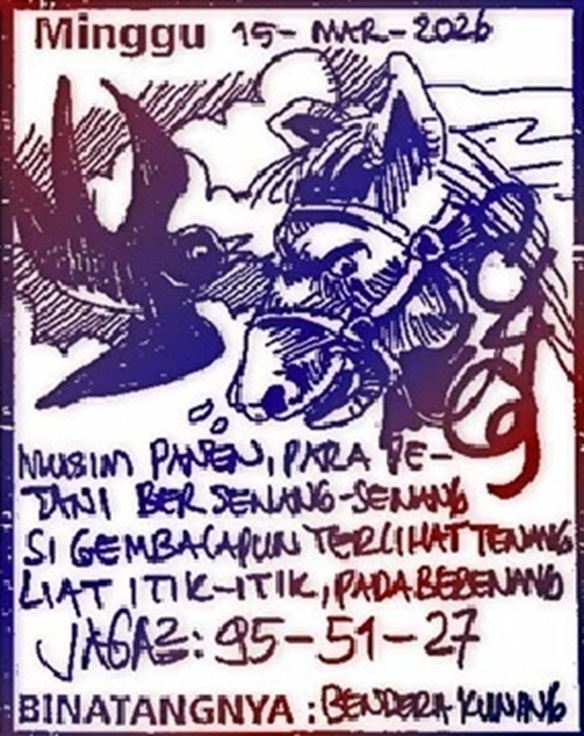 Minggu 15-MAR-2026
MUSIM PANEN, PARA PE-
TANI BERSENANG-SENANG
SI GEMBALAPUN TERLIHAT TENANG
LIAT ITIK-ITIK, PADA BERENANG
JAGA2: 95-51-27
BINATANGNYA : BENDERA KUNANG